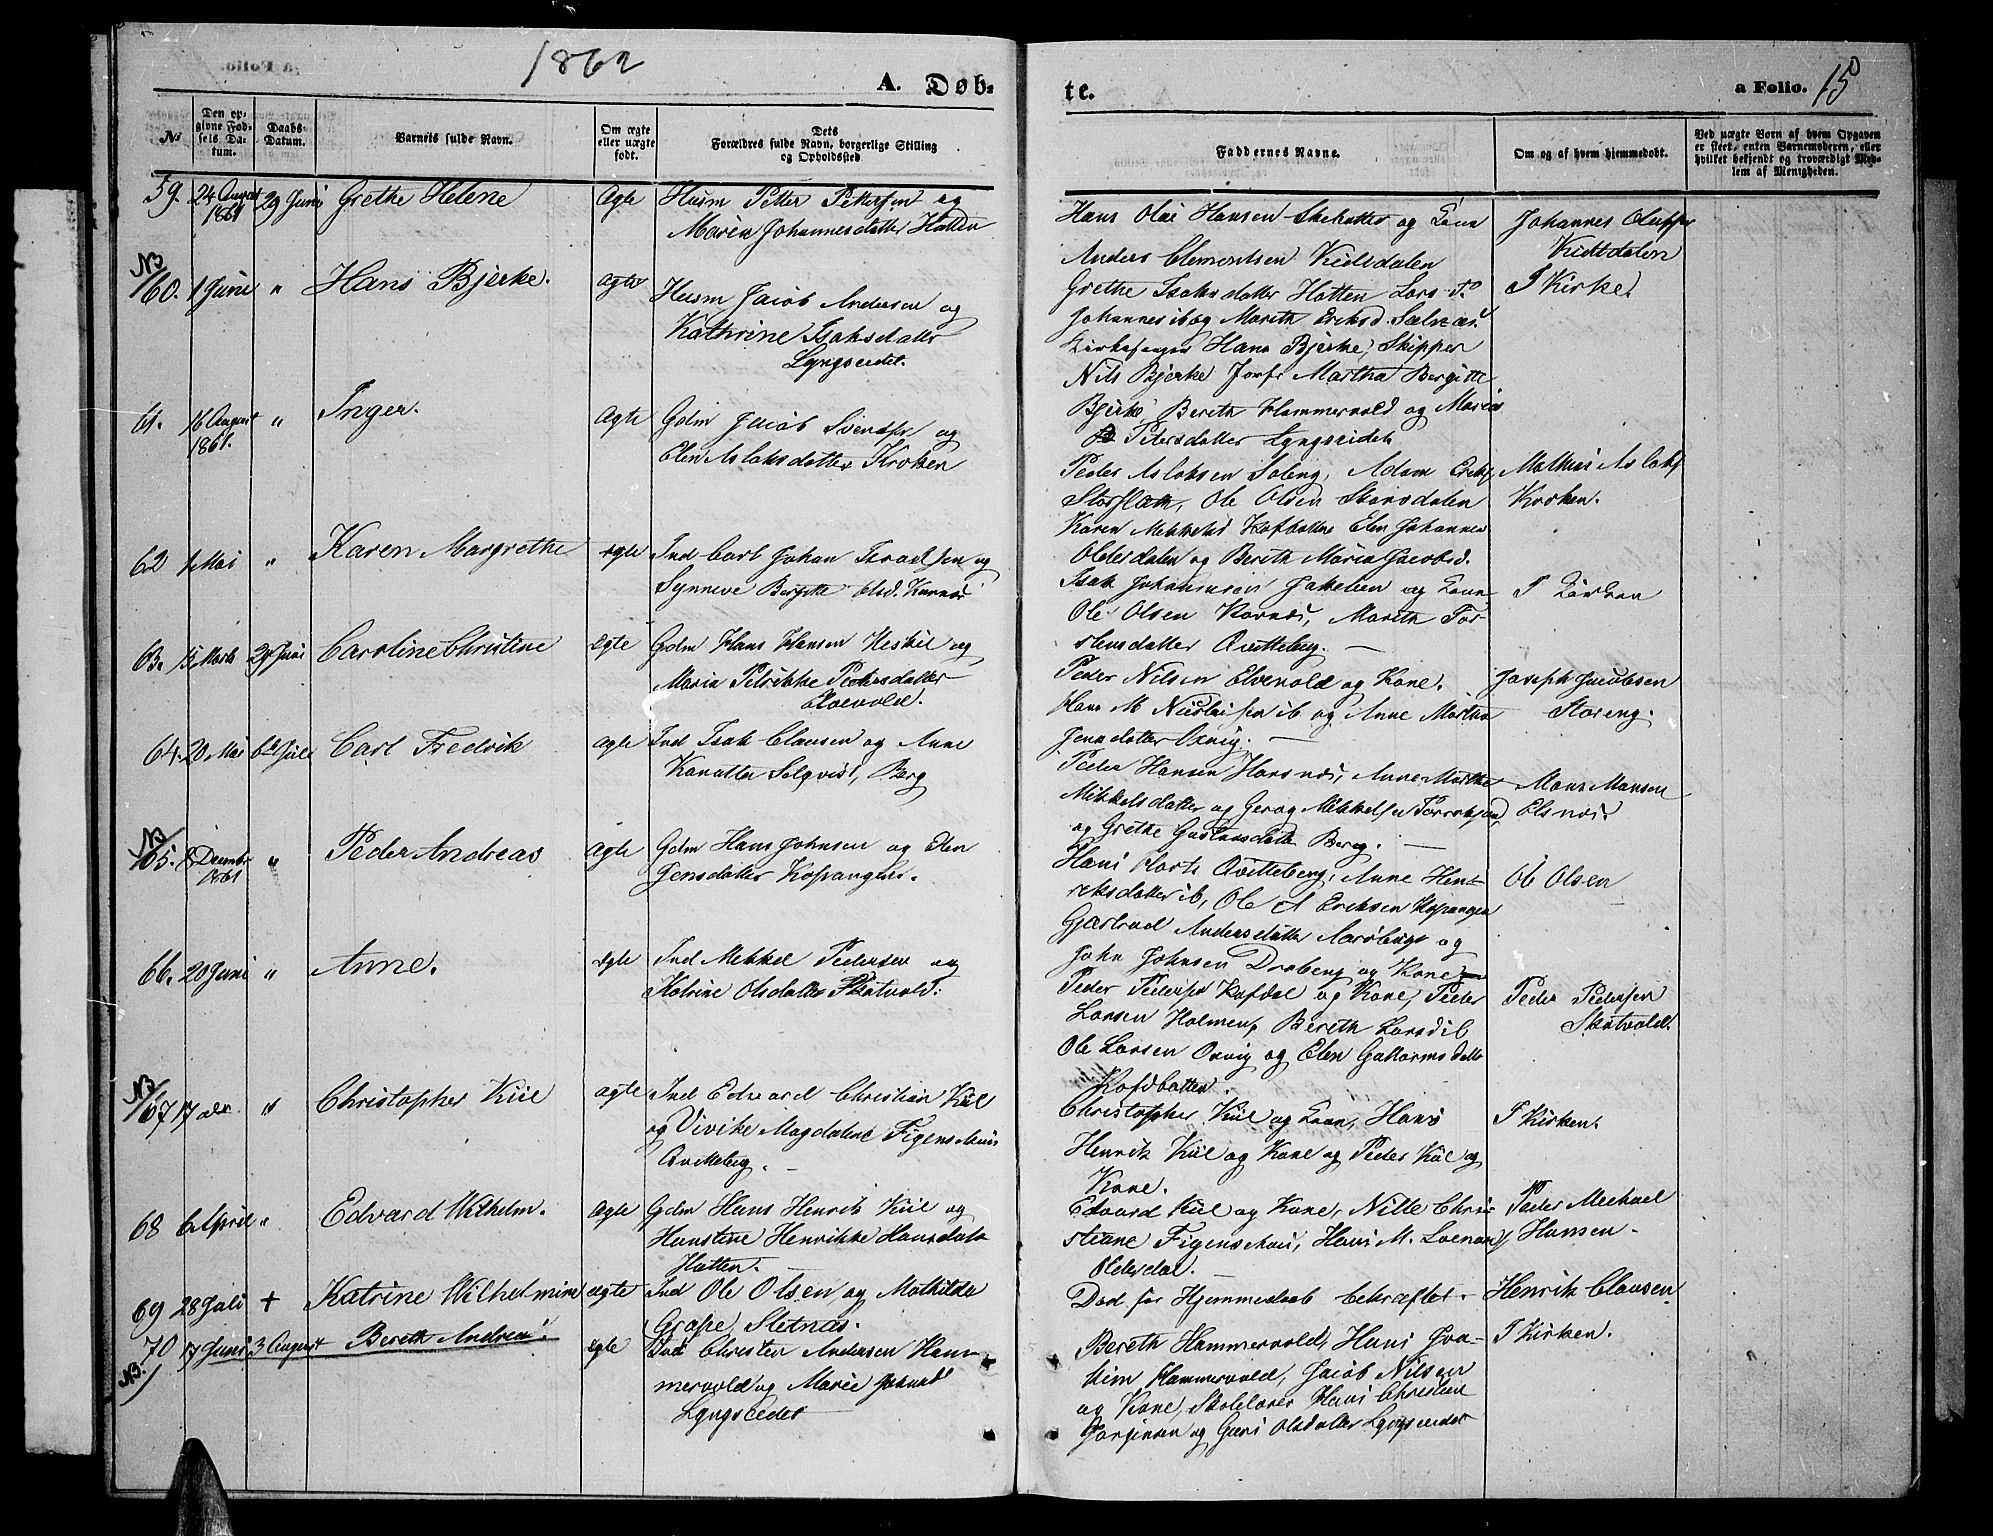 1862
A. Døb-
te.
a Folio. 15
No
Den op-
givne Fød-
sels Da-
tum.
Daabs-
Datum.
Barnets fulde Navn.
Om ægte
eller uægte
født.
Dets
Forældres fulde Navn, borgerlige Stilling
og Opholdssted.
Faddernes Navne.
Om og af hvem hjemmedøbt.
Ved uægte Børn af hvem Opgaven
er skeet, enten Barnemoderen, eller
hvilket bekjendt og troværdigt Med-
lem af Menigheden.
59. 24 August 1861 29 Juni Grethe Helene Ægte Husm Petter Pettersen og
Maren Johannesdatter Hatten
Hans Olai Hansen Skebotter og Kone
Anders Clementsen Kidsdalen
Grethe Isaksdatter Hatten Lars
Johannes ib og Mareth Eriksd.
Johannes
Kidsdalen
NB 60. 1 Juni " Hans Bjerke. ægte Husm Jacob Andersen og
Kathrine Isaksdatter
Lyngseidet.
Kirkesanger Hans Bjerke, Skipper
Nils Bjerke Jomfr Martha Bergitte
Bjerke Bereth Hammervold og Maria
Petersdatter Lyngseidet
I Kirke.
61. 16 August 1861. " Inger. Ægte Gdm Jacob Svendsen og
Elen Aslaksdatter Kroken
Peder Aslaksen Soleng, Adam Eriks
Storslett, Ole Olsen Skarsdalen
Karen Mikkelsd Kofbotten Elen Johannes
Olderdalen og Bereth Maria Jacobsd.
Mathis Aslaks
Kroken.
62 1 Mai " Karen Margrethe ægte Ind Carl Johan og
Synneve Bergitte Olsd. Karnæs
Isak Johannesen Jakelien og Kone
Ole Olsen Karnæs, Mareth Tor-
stensdatter Qvitteberg. —
I Kirken
63. Marts 29 Juni Caroline Christine ægte Gdm Hans Hansen Keskil og
Maria Petrikke Pedersdatter
Elvevold.
Peder Nilsen Elvevold og Kone.
Hans M Nicolaisen ib og Anne Martha
Jensdatter Oxvig. —
Joseph Jacobsen
Storeng.
64. 20 Mai 6te Juli Carl Fredrik ægte Ind Isak Clausen og Anne
Selqvist, Berg
Peder Hansen Horsnæs, Anne Marthe
Mikkelsdatter og Mikkelsen
og Grethe Gustavsdatter Berg. —
Mons Monsen
Elsnæs.
NB 65. 8 Decembr 1861 " Peder Andreas Ægte Gdm Hans Johnsen og Elen
Jensdatter Kopangen.
Hans Qvitteberg, Anne Hen-
riksdatter ib, Ole A Eriksen Kopangen
Gjertrud Andersdatter og
John Johnsen Draberg og Kone
Ole Olsen
66. 20 Juni " Anne. ægte Ind Mekkel Pedersen og
Katrine Olsdatter Skotvold.
Peder Pedersen Kofdal og Kone, Peder
Larsen Holmen, Bereth Larsd ib
Ole Larsen Oxvig og Elen datter
Kofdbotten.
Peder Pedersen
Skotvold.
NB 67 17 " Christopher Kiil ægte Ind Edvard Christian Kiil
og Vivike Magdalene Figenschou
Qvitteberg. —
Christopher Kiil og Kone, Hans
Henrik Kiil og Kone og Peder Kiil og
Kone.
I Kirken.
68 6 April " Edvard Wilhelm. Ægte Gdm Hans Henrik Kiil og
Hanstine Henrikke Hansdatter
Hatten. —
Edvard Kiil og Kone, Nille Chri-
stiane Figenschou, Hans M.
Olderdal. —
Peder Mechael
Hansen.
69 28 Juli + Katrine Wilhelmine ægte Ind Ole Olsen og Mathilde
Grape, Sletnæs.
Død før Hjemmedaab bekræftet.
Henrik Clausen
70 NB. 17 Juni 3 August Bereth Andrea ægte Ind Christen Andersen Ham-
mervold og Marie
Lyngseidet
Bereth Hammervold, Hans Joa-
kim Hammervold, Jacob Nilsen
og Kone, Skolelærer Hans Christian
Jørgensen og Olsdatter Lyngseidet
I Kirken.